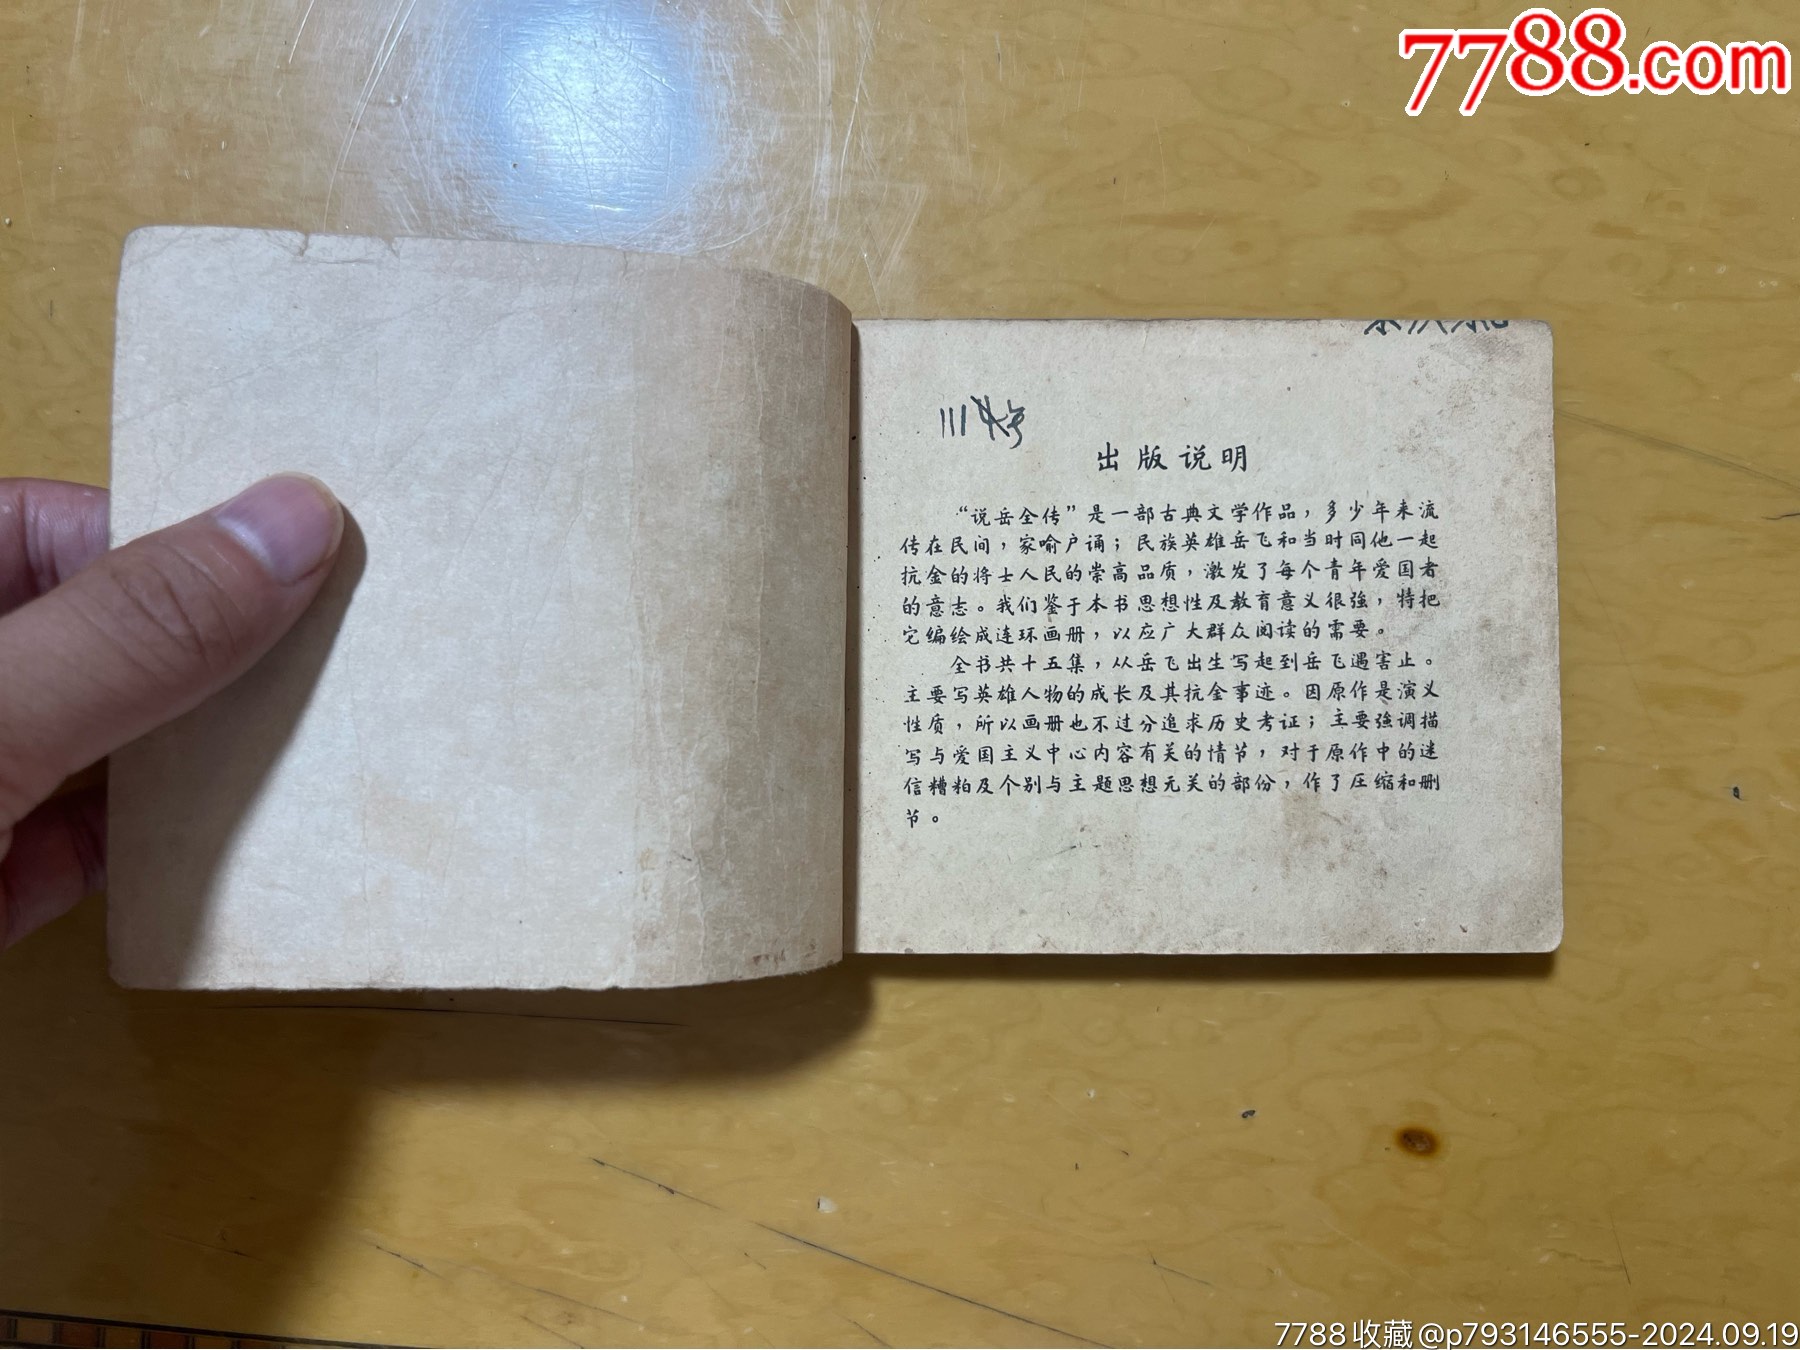 7788.com
出版说明
“说岳全传”是一部古典文学作品，多少年来流
传在民间，家喻户诵；民族英雄岳飞和当时同他一起
抗金的将士人民的崇高品质，激发了每个青年爱国者
的意志。我们鉴于本书思想性及教育意义很強，特把
它编绘成连环画册，以应广大群众阅读的需要。
全书共十五集，从岳飞出生写起到岳飞遇害止。
主要写英雄人物的成长及其抗金事迹。因原作是演义
性质，所以画册也不过分追求历史考证；主要強调描
写与爱国主义中心内容有关的情节，对于原作中的迷
信糟粕及个别与主题思想无关的部份，作了压缩和删
节。
7788收藏@p793146555-2024.09.19